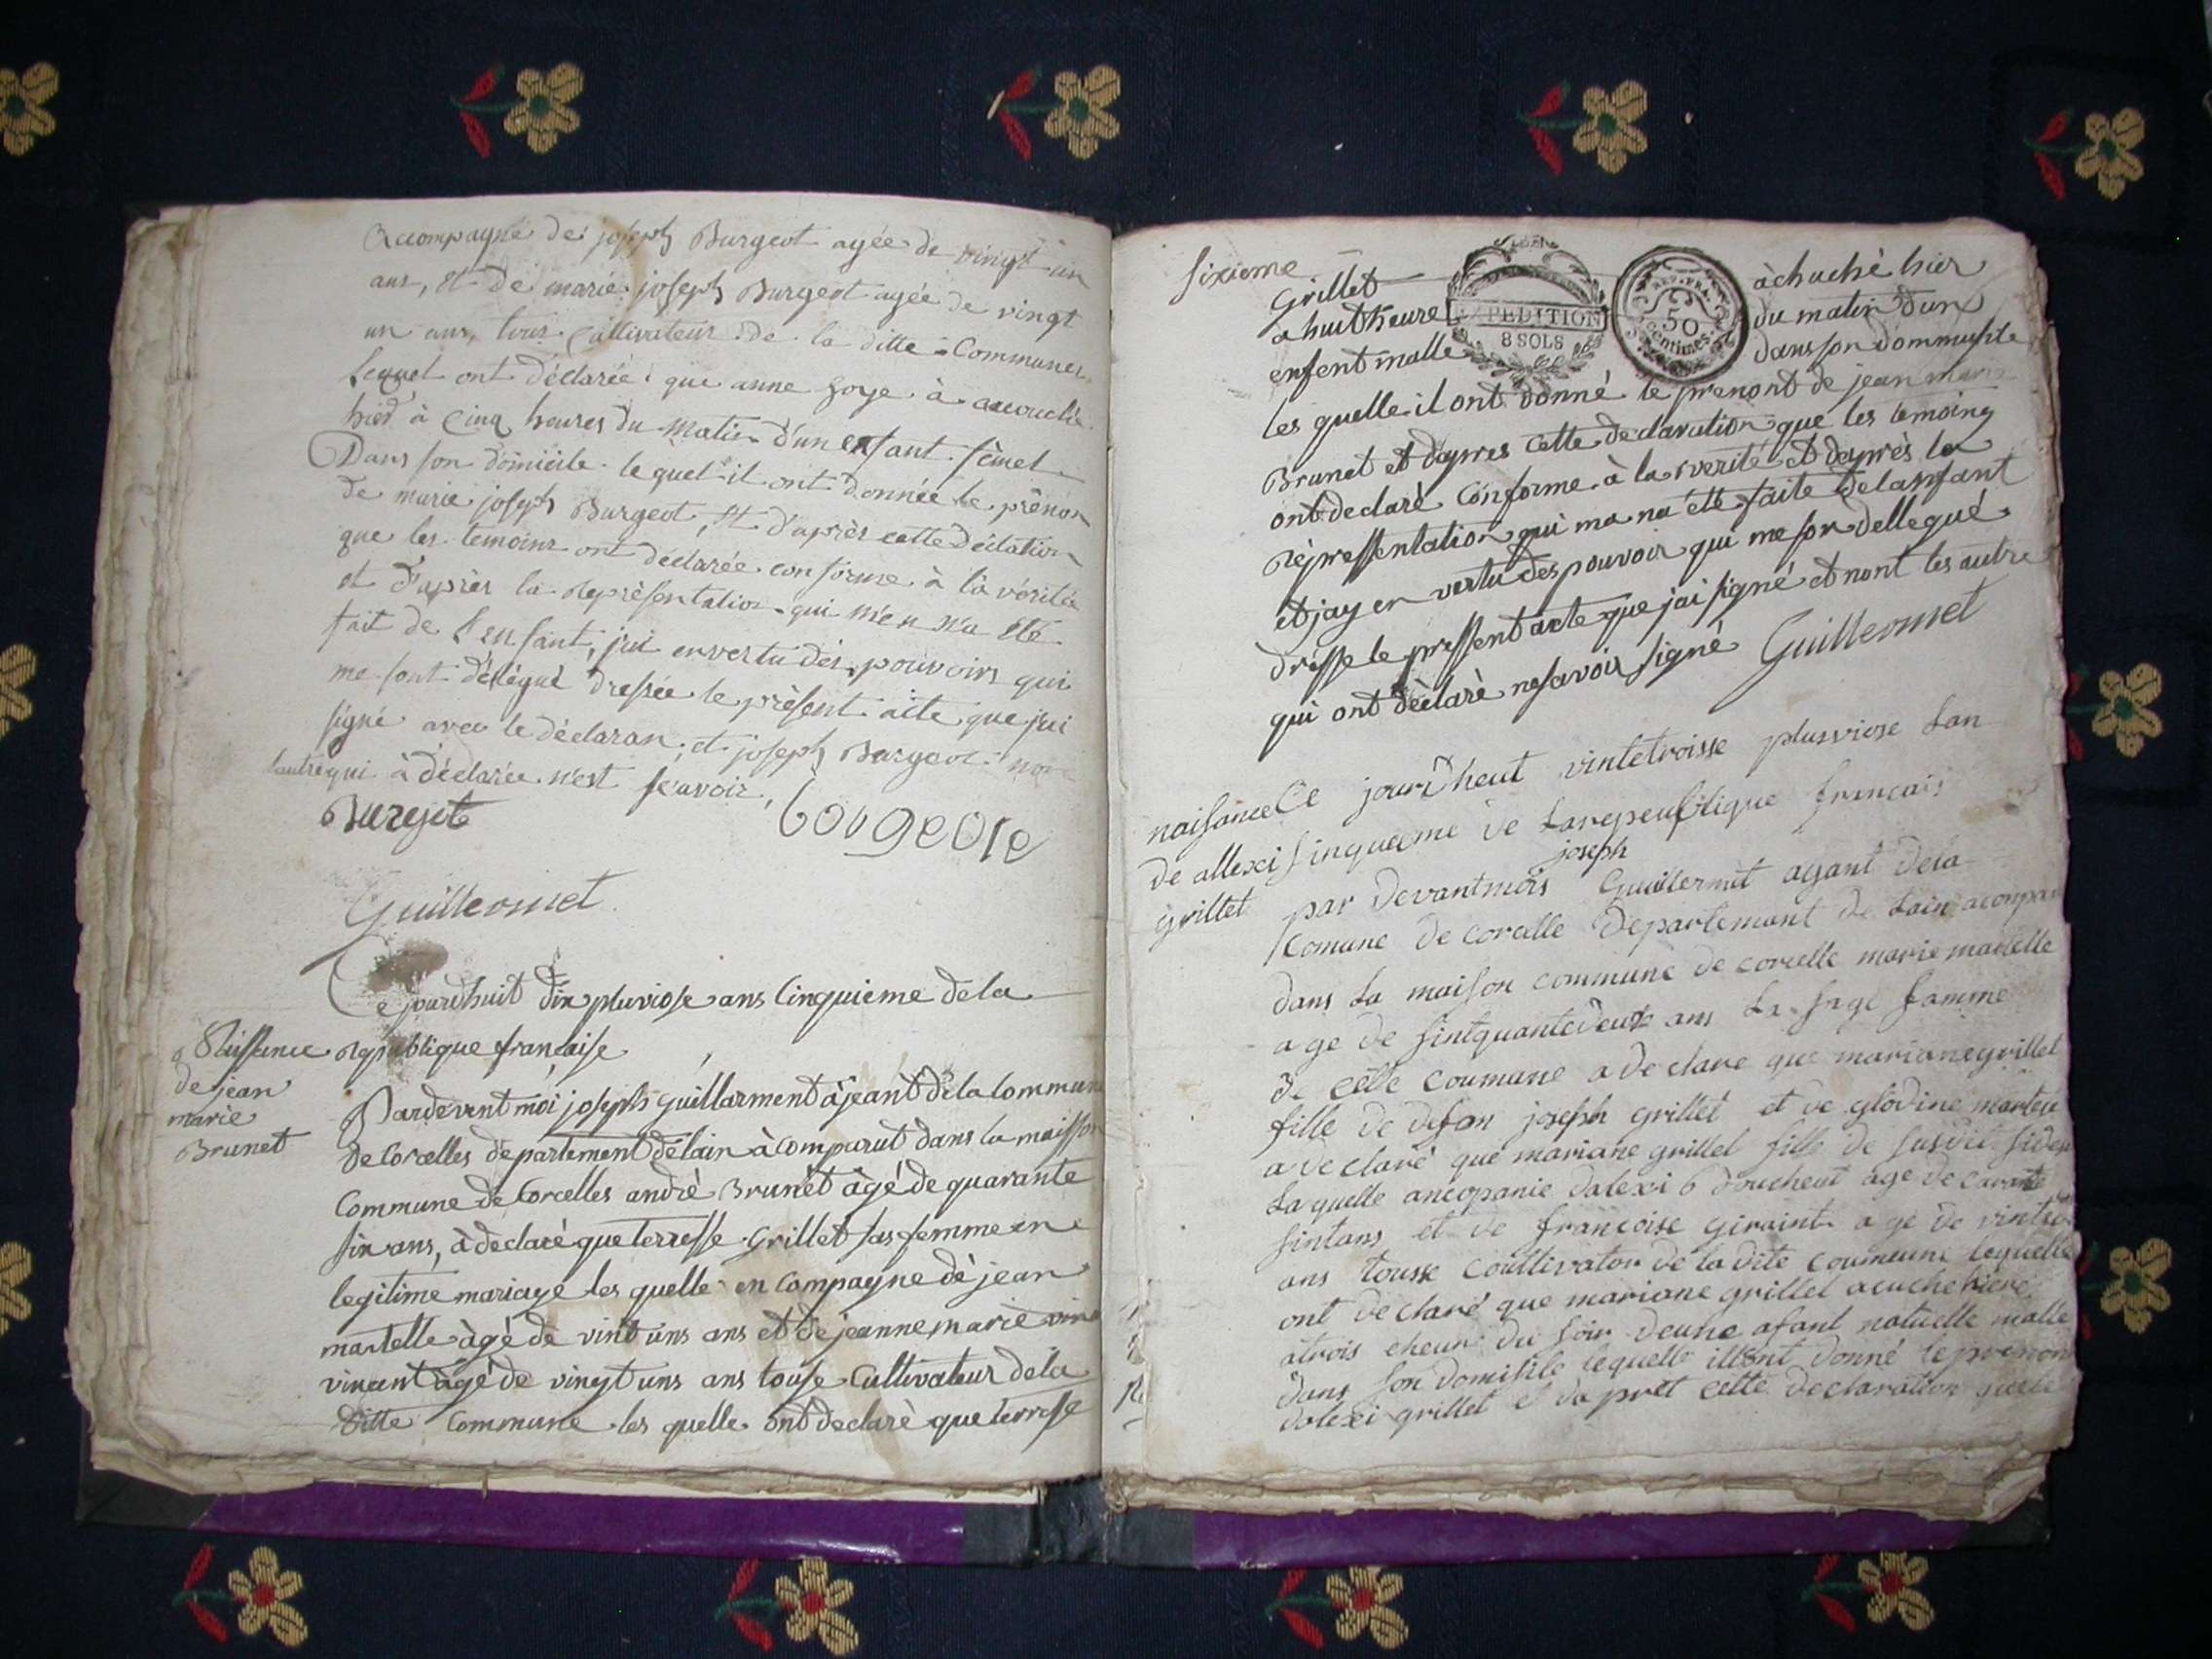 Accompagné de joseph Burgeot agée de vingt un
ans, et de marie joseph Burgeot agée de vingt
un ans, tous cultivateur de la ditte Commune
lequel ont déclarée que anne goye à acouché
hier à cinq heures du matin d'un enfant fémel
Dans son domicile lequel il ont donnée le prénon
de marie joseph Burgeot, et d'après cette déclation
que les temoins ont déclarée conforme à la vérité
et d'après la représentation qui m'en n'a été
fait de l'enfant, j'ai en vertu des pouvoirs qui
me sont délégué dressée le présent acte que j'ai
signé avec le déclaran, et joseph Burgeot non
lautre qui à déclarée n'est scavoir,
Burgeot
bougeore
Guillermet
Ce jourdhuit dix pluviose ans Cinquieme de la
Naissance
de jean
marie
Brunet
republique française
Pardevent moi joseph guillarment àjeant de la Commune
de Corcelles departement de lain à comparut dans la maisson
Commune de Corcelles andrè Brunet àgé de quarante
six ans, à declaré que terresse Grillet sas femme en
legitime mariage les quelle en Compagne dè jean
martelle àgé de vint uns ans et de jeanne marie
vincent àgé de vingt uns ans touse Cultivateur de la
ditte Commune les quelle ont declarè que terresse
sixieme
Grillet
àchuché hier
a huit heure
du matin dun
enfent malle
dans son
EXPEDITION
8 SOLS
REP. FRA.
50
centimes
les quelle il ont donné le prenont de jean marie
Brunet et dapres cette declaration que les temoins
ont declarè Conforme à la verité et daprès la
répressentation qui ma na été faite de lanfant
et jay en vertu des pouvoir qui me son dellegué
drésse le pressent acte que jai signé et nont les autre
qui ont dèclarè ne savoir signé Guillermet
naisance
de allexi
grillet
Ce jourdheut vintetroisse plusviose Lan
sinqueme de Larepeublique francais
joseph
par devantmois Guillermet agant dela
Comune de corcelle departemant de Lain acompar
dans La maison commune de corcelle marie martelle
age de sintquantedeux ans La sage famme
de cèlle coumune a declare que mariane grillet
fille de defan joseph grillet et de glodine martere
a declaré que mariane grillet fille de susdit
Laquelle ancopanie dalexi age de
sintans et de francoise giraint age de
ans tousse coultivator de la dite coumeune lequelle
ont declaré que mariane grillet acuche hiere
atrois eheur du soir deune afant natuelle malle
dans son domisile lequelle illont donné le prenon
dalexi grillet e da pret cette declaration